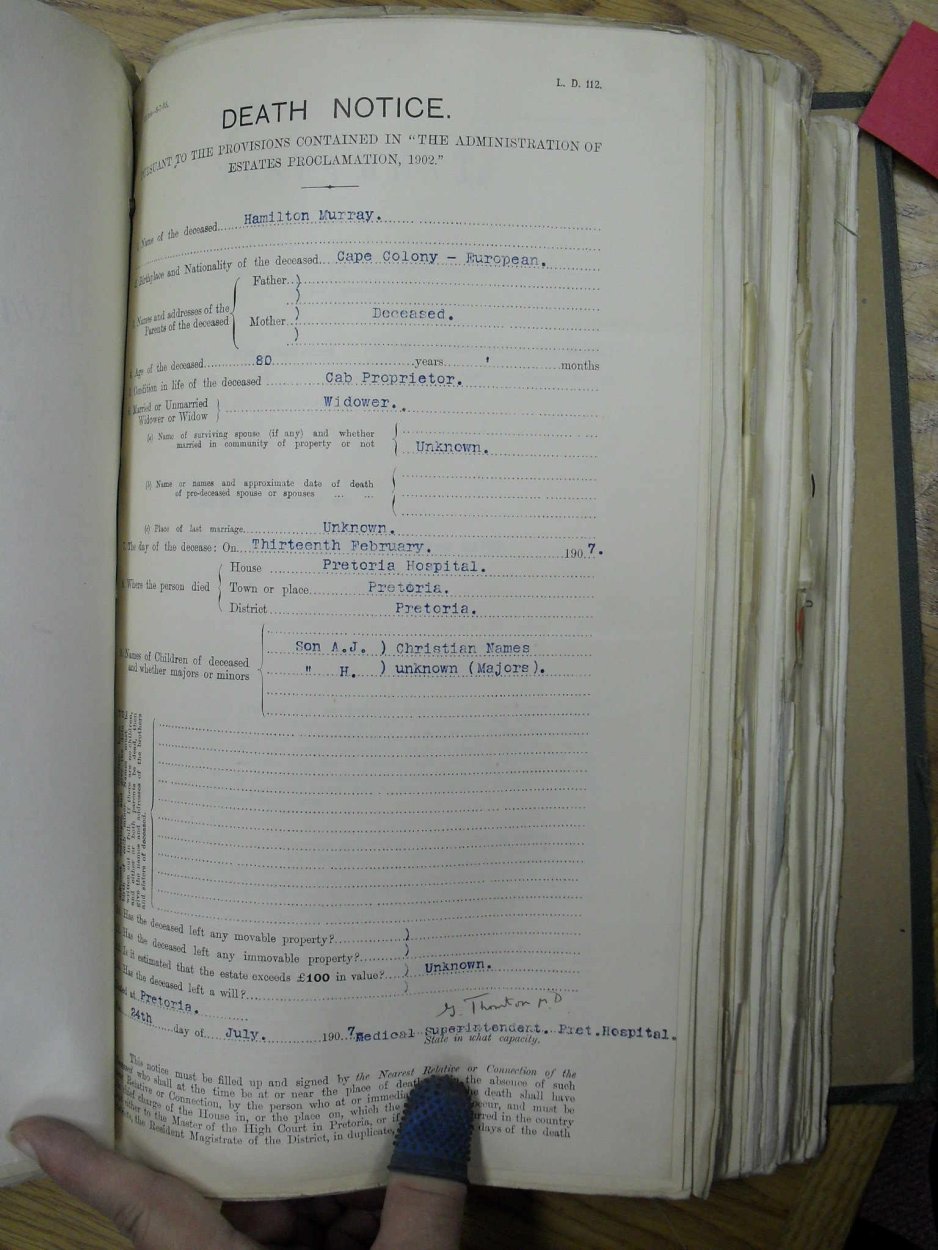 L. D. 112.
DEATH NOTICE.
PURSUANT TO THE PROVISIONS CONTAINED IN "THE ADMINISTRATION OF
ESTATES PROCLAMATION, 1902."
Name of the deceased Hamilton Murray.
Birthplace and Nationality of the deceased Cape Colony - European.
Names and addresses of the Parents of the deceased
Father )
)
Mother ) Deceased.
)
Age of the deceased 80 years ' months
Condition in life of the deceased Cab Proprietor.
Married or Unmarried Widower or Widow } Widower.
(a) Name of surviving spouse (if any) and whether
married in community of property or not Unknown.
(b) Name or names and approximate date of death
of pre-deceased spouse or spouses ... ...
(c) Place of last marriage Unknown.
The day of the decease: On Thirteenth February. 190 7.
Where the person died
House Pretoria Hospital.
Town or place Pretoria.
District Pretoria.
Names of Children of deceased
and whether majors or minors
Son A.J. ) Christian Names
" H. ) unknown (Majors).
written out in full. If there are no children,
and either or both parents be dead, then
give the names and addresses of the brothers
and sisters of deceased.
Has the deceased left any movable property? )
Has the deceased left any immovable property? )
Is it estimated that the estate exceeds £100 in value? ) Unknown.
Has the deceased left a will? )
at Pretoria.
G. Thornton M.D
24th day of July. 190 7 Medical Superintendent. Pret.Hospital.
State in what capacity.
This notice must be filled up and signed by the Nearest Relative or Connection of the
who shall at the time be at or near the place of death the absence of such
Relative or Connection, by the person who at or immedi death shall have
charge of the House in, or the place on, which the occur, and must be
to the Master of the High Court in Pretoria, or if in the country
the Resident Magistrate of the District, in duplicate, days of the death